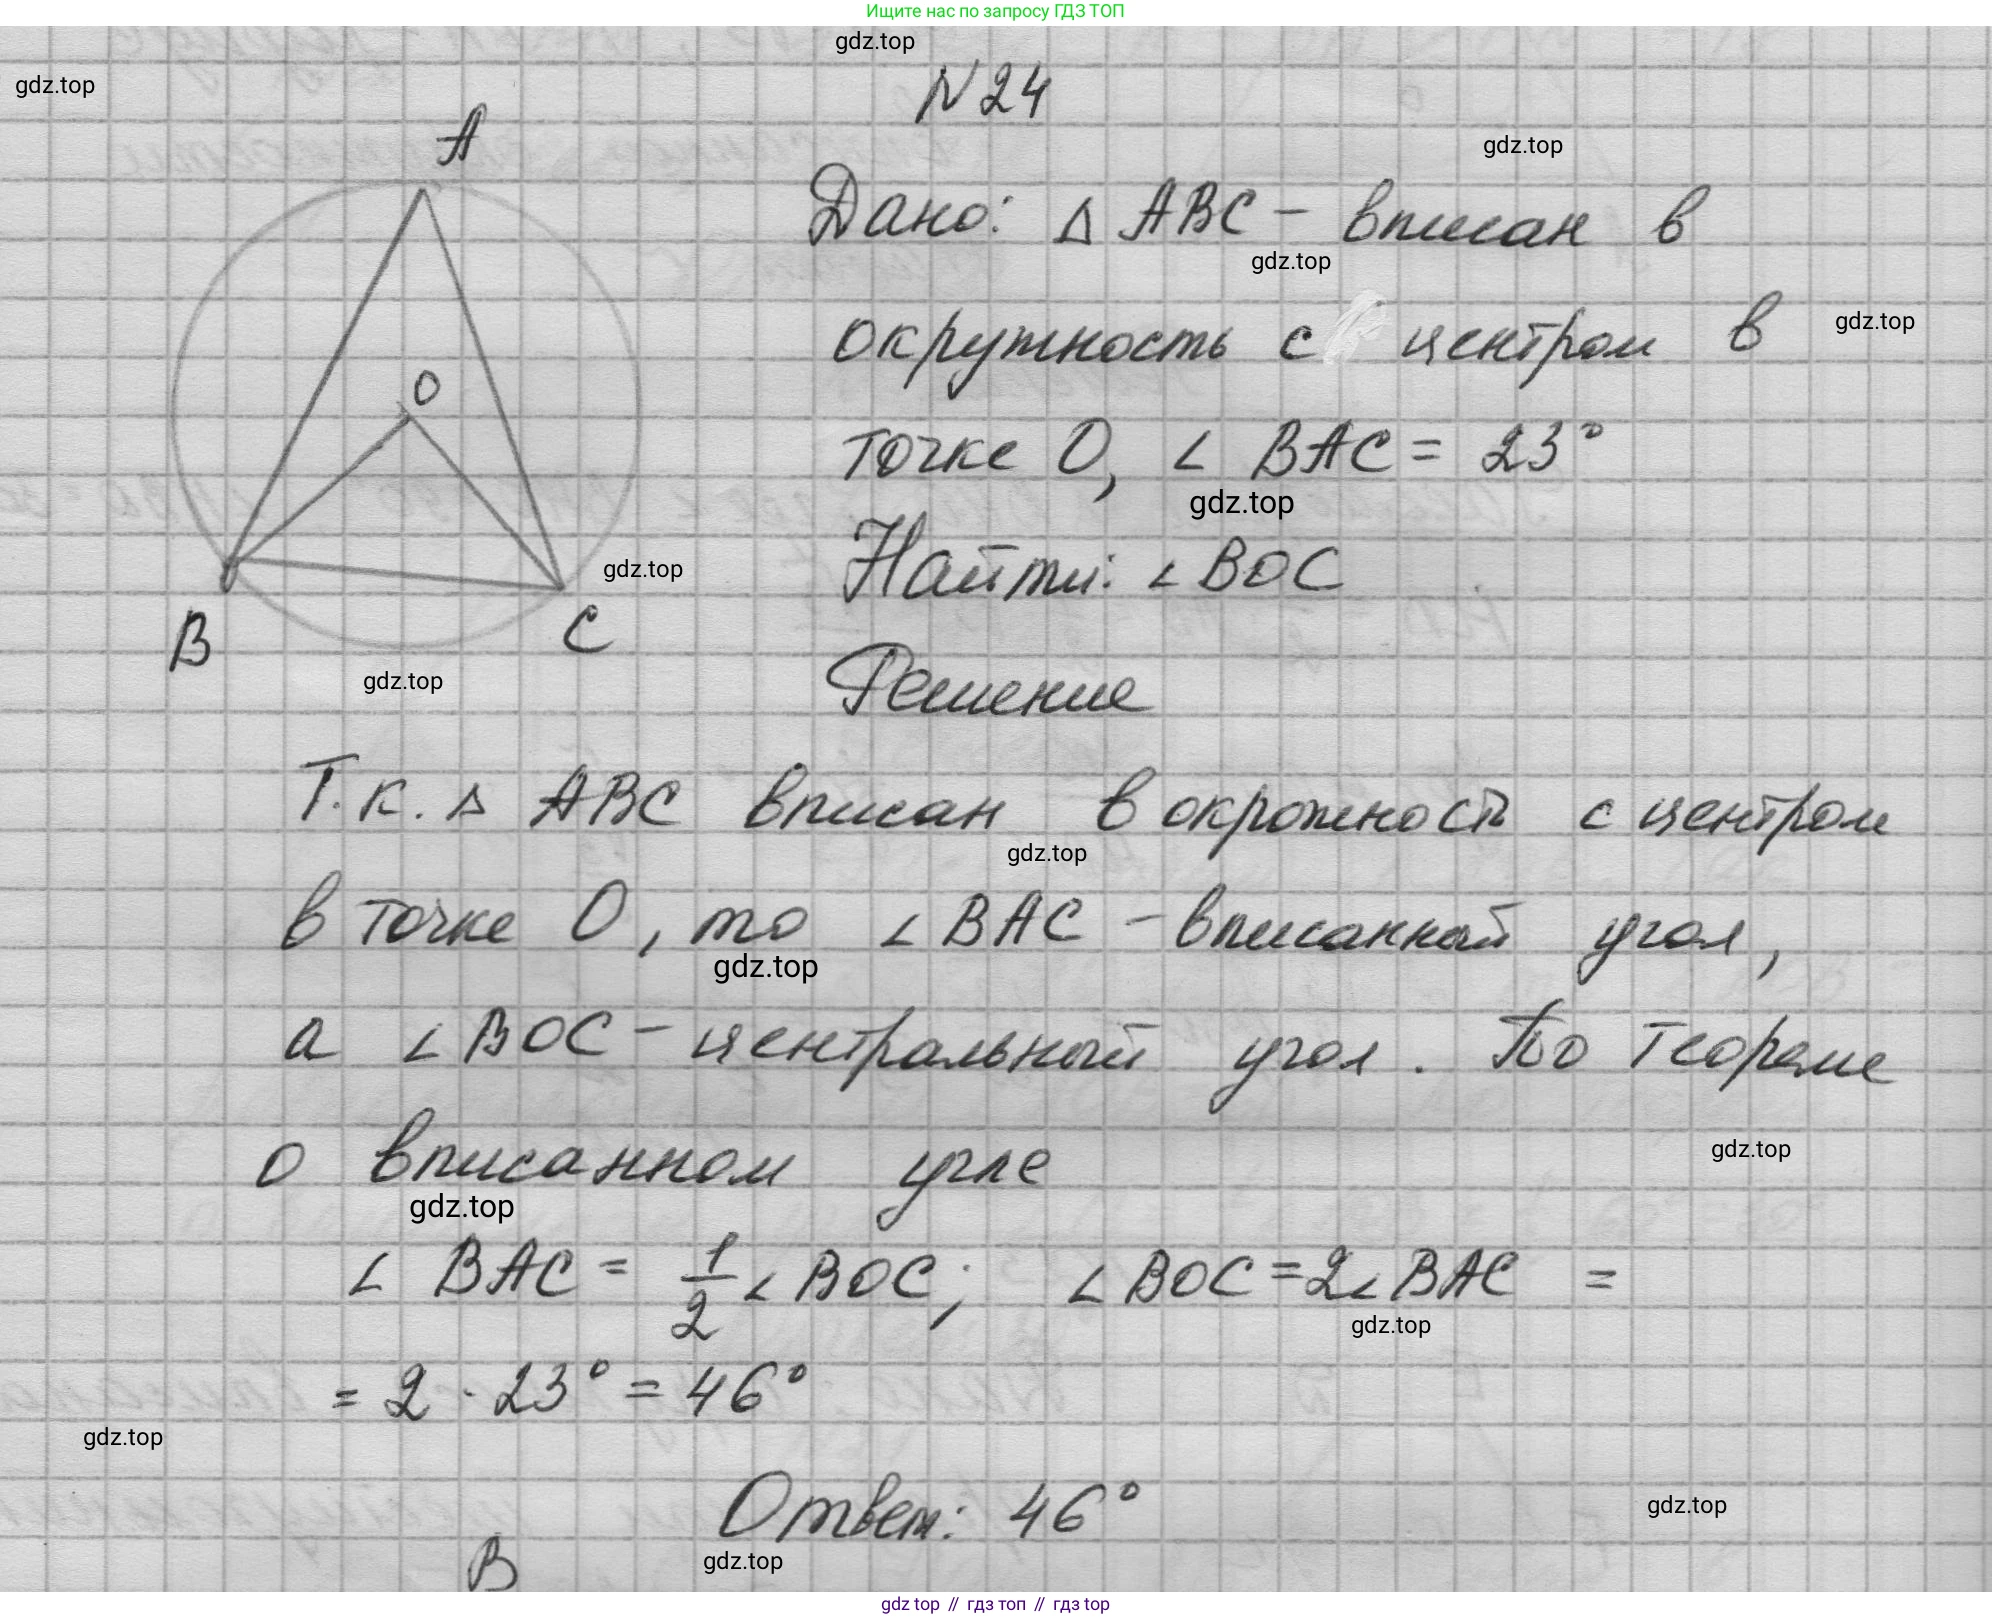 Ищите нас по запросу ГДЗ ТОП
gdz.top
N 24
gdz.top
gdz.top
A
Дано: △ ABC – вписан в
gdz.top
окружность с центром в
gdz.top
O
точке O, ∠ BAC = 23°
gdz.top
Найти: ∠ BOC
gdz.top
B
C
gdz.top
Решение
Т.к. △ ABC вписан в окрожность с центром
gdz.top
в точке O, то ∠ BAC – вписанный угол,
gdz.top
а ∠ BOC – центральный угол. По теореме
gdz.top
о вписанном угле
gdz.top
∠ BAC = 1/2 ∠ BOC; ∠ BOC = 2∠ BAC =
gdz.top
= 2 · 23° = 46°
gdz.top
Ответ: 46°
gdz.top
B
gdz.top
gdz top // гдз топ // гдз top